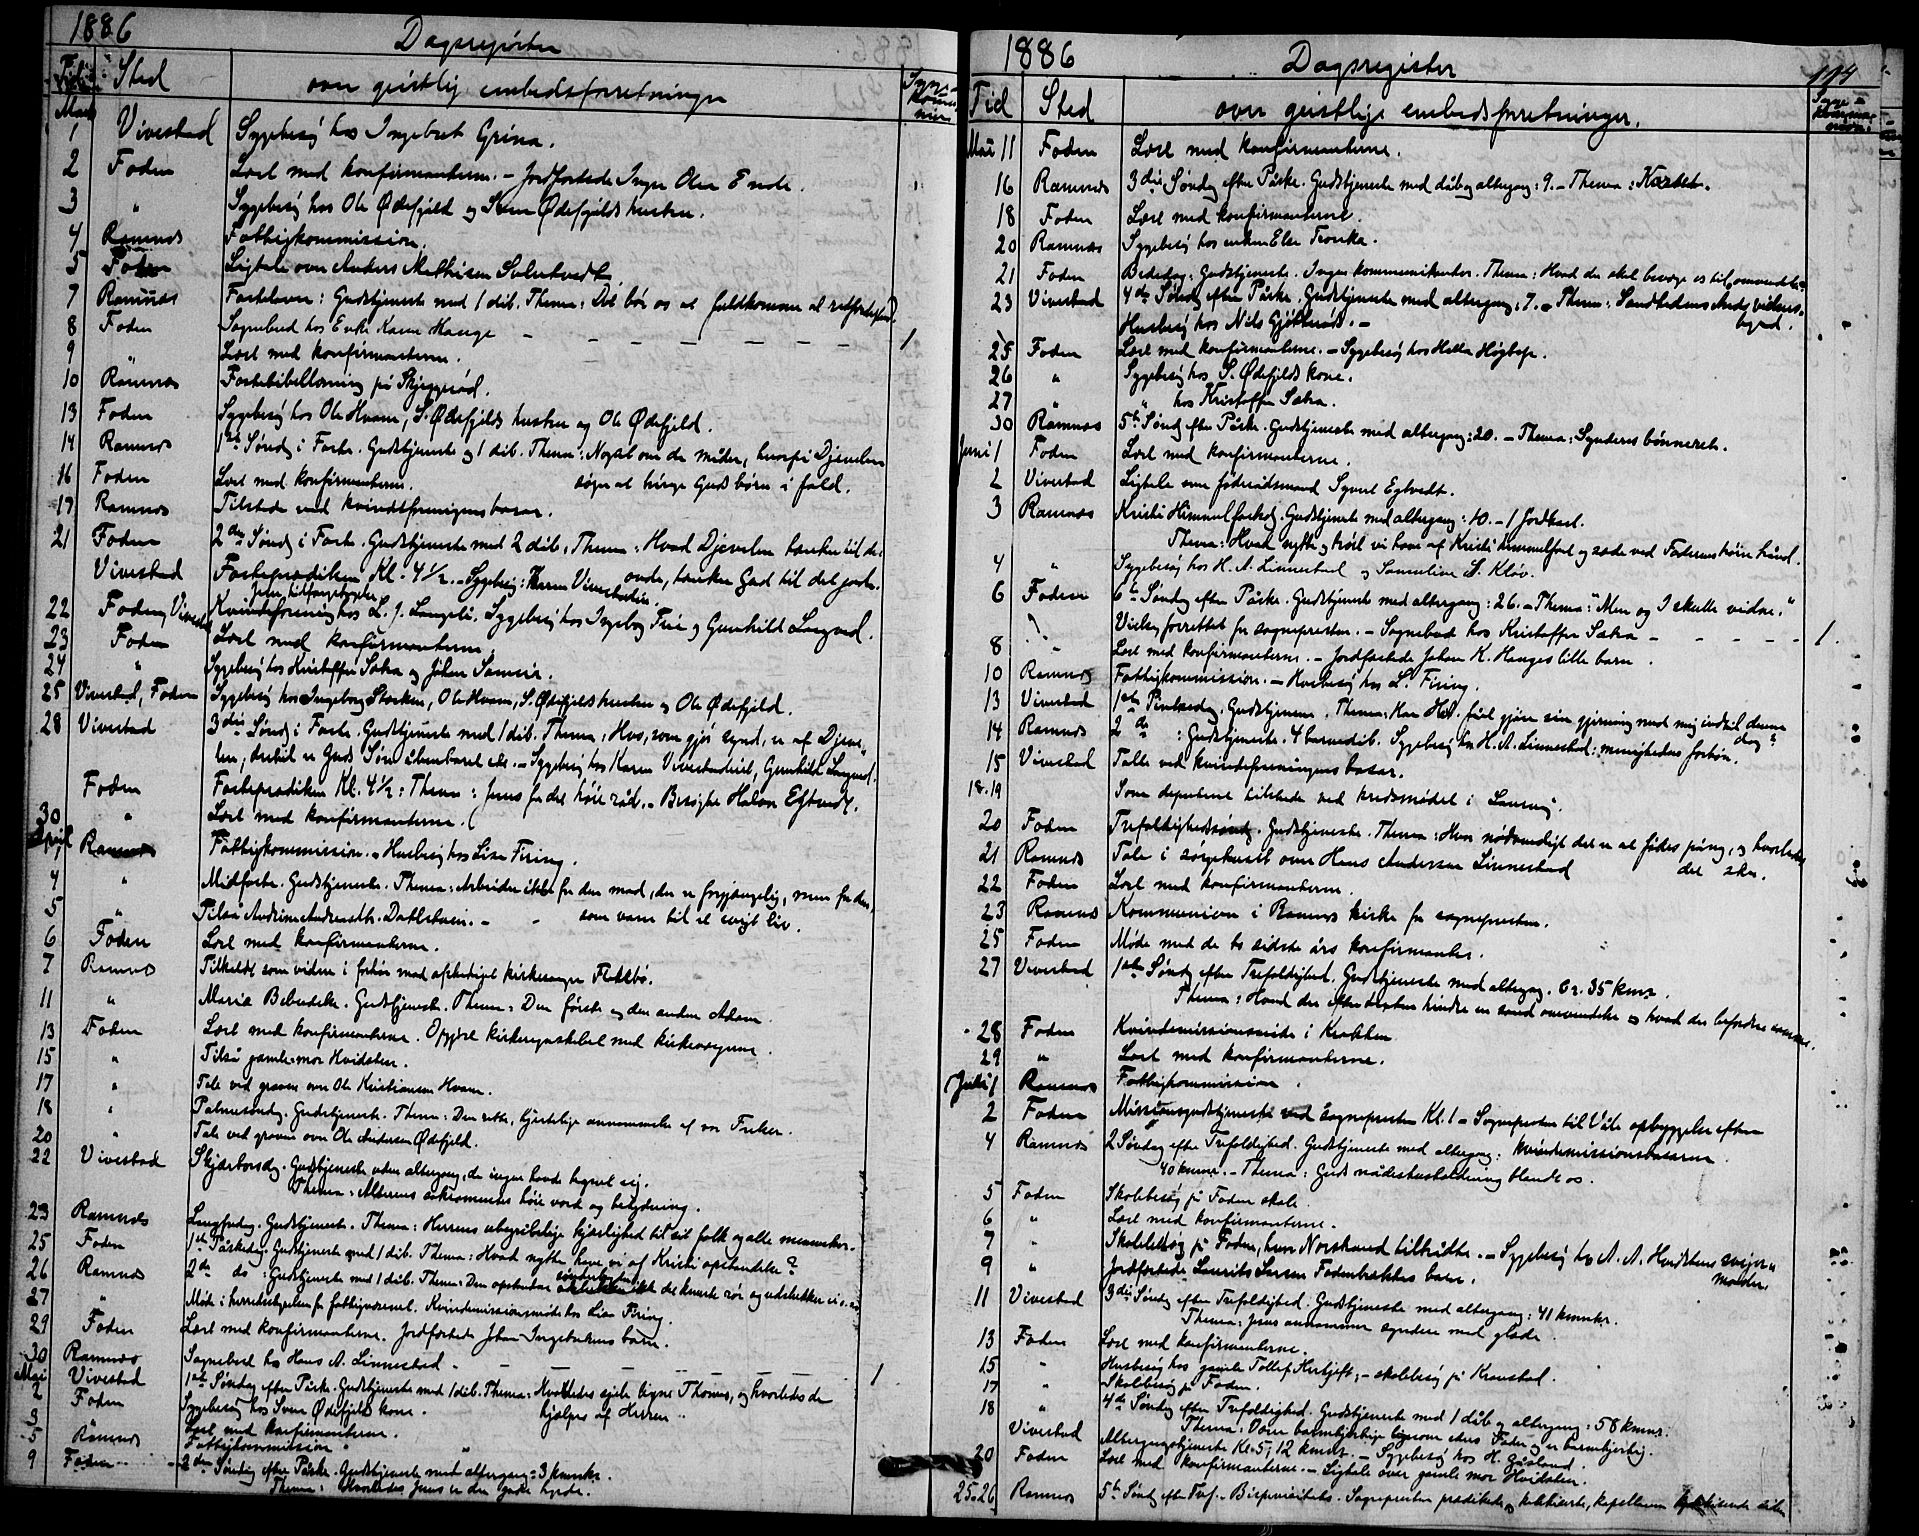 1886
Dagsregister
Tid
Sted
over geistlig embedsforretninger
Syge-
kommu-
nion
Marts
1 Vivestad Sygebesøg hos Ingebret Grina.
2 Foden Læst med konfirmanterne. - Jordfæstede Inger Olea Ende.
3 " Sygebesøg hos Ole Ødefjeld og Sven Ødefjelds hustru.
4 Ramnæs Fattigkommission.
5 Foden Ligtale over Anders Mathisen
7 Ramnæs Fastelavn: Gudstjeneste med 1 dåb. Thema: Det bør os at fuldkomme al retfærdighed.
8 Foden Sognebud hos Enke Karen Hauge - - - - - - 1
9 " Læst med konfirmanterne.
10 Ramnæs Fastebibellæsning på Skjeggerød.
13 Foden Sygebesøg hos Ole Hvam, S. Ødefjelds hustru og Ole Ødefjeld.
14 Ramnæs 1ste Sønd. i Faste. Gudstjeneste og 1 dåb. Thema: Noget om de måder, hvorpå Djævelen
16 Foden Læst med konfirmanterne. søger at bringe Guds børn i fald.
17 Ramnæs Tilstede ved kvindeforeningens basar.
21 Foden 2den Sønd. i Faste. Gudstjeneste med 2 dåb. Thema: Hvad Djævelen tænker til det
Vivestad Fasteprædiken Kl. 4 1/2. - Sygebesøg: Karen onde, tænker Gud til det gode.
22 Foden, Vivestad Kvindeforening hos L. J. Langeli. Sygebesøg hos Ingeborg og Gunhild
23 Foden Læst med konfirmanterne.
24 " Sygebesøg hos Kristoffer Sætra og Johan
25 Vivestad, Foden Sygebesøg hos Ingeborg Storken, Ole Hvam, S. Ødefjelds hustru og Ole Ødefjeld.
28 Vivestad 3die Sønd. i Faste. Gudstjeneste med 1 dåb. Thema: Hvo, som gjør synd, er af Djæve-
len, dertil er Guds Søn åbenbaret etc. - Sygebesøg hos Karen Gunhild
Foden Fasteprædiken Kl. 4 1/2: Thema: Jesus for det høie råd. - Besøgte Halvor
30 " Læst med konfirmanterne.
April
1 Ramnæs Fattigkommission. - Husbesøg hos Lisa Firing.
4 " Midfaste. Gudstjeneste. Thema: Arbeider ikke for den mad, der er forgjængelig, men for den,
5 " Tilså Andrine Andreasdtr. - - som varer til et evigt liv.
6 Foden Læst med konfirmanterne.
7 Ramnæs Tilkaldt som vidne i forhør mod afskediget kirkesanger Flekkbø.
11 " Mariæ Bebudelse. Gudstjeneste. Thema: Den første og den anden Adam.
13 Foden Læst med konfirmanterne. Opgjort kirkeregnskabet med kirkeværgerne.
15 " Tilså gamlemor Hvidsten.
17 " Tale ved graven over Ole Kristiansen Hvam.
18 " Palmesøndag. Gudstjeneste. Thema: Den rette, hjertelige annammelse af vor Frelser.
20 " Tale ved graven over Ole Andersen Ødefjeld.
22 Vivestad Skjærtorsdag. Gudstjeneste uden altergang, da ingen havde tegnet sig.
Thema: Alterens sakramentes høie værd og betydning.
23 Ramnæs Langfredag. Gudstjeneste. Thema: Herrens ubegribelige kjærlighed til sit folk og alle mennesker.
25 Foden 1ste Påskedag. Gudstjeneste med 1 dåb. Thema: Hvad nytte have vi af Kristi opstandelse?
26 Ramnæs 2den do: Gudstjeneste med 1 dåb. Thema: Den opstandne ikke det knuste rør og udslukker ei
27 " Møde i herredsstyrelsen for fattigvæsenet. Kvindemissionsmøde hos Lisa Firing.
29 Foden Læst med konfirmanterne. Jordfæstede Johan barn.
30 Ramnæs Sognebud hos Hans A. Linnestad - - - - - 1
Mai
2 Vivestad 1ste Søndag efter Påske. Gudstjeneste med 1 dåb. Thema: Hvorledes sjele ligne Thomas, og hvorledes de
3 Foden Sygebesøg hos Sven Ødefjelds kone. hjælpes af Herren.
Læst med konfirmanterne.
5 Ramnæs Fattigkommission.
9 Foden 2den Søndag efter Påske. Gudstjeneste med altergang: 3 kmnkr.
Thema: Hvorledes Jesus er den gode hyrde.
1886
Dagsregister
114
Tid
Sted
over geistlige embedsforretninger.
Syge-
kommu-
nion.
Mai 11 Foden Læst med konfirmanterne.
16 Ramnæs 3die Søndag efter Påske. Gudstjeneste med dåb og altergang: 9. - Thema: Korset.
18 Foden Læst med konfirmanterne.
20 Ramnæs Sygebesøg hos enken Else Tronka.
21 Foden Bededag: Gudstjeneste. Ingen kommunikanter. Thema: Hvad der skal bevæge os til omvendelse.
23 Vivestad 4de Søndag efter Påske. Gudstjeneste med altergang: 7. - Thema: Sandhedens Ands vidnes-
Husbesøg hos Nils - byrd.
25 Foden Læst med konfirmanterne. - Sygebesøg hos Helle
26 " Sygebesøg hos S. Ødefjelds kone.
27 " " hos Kristoffer Sætra.
30 Ramnæs 5te Sønd. efter Påske. Gudstjeneste med altergang: 20. - Thema: Synderes bønneret.
Juni 1 Foden Læst med konfirmanterne.
2 Vivestad Ligtale over føderådsmand Syvert
3 Ramnæs Kristi Himmelfartsd. Gudstjeneste med altergang: 10. - 1 Jordkast.
Thema: Hvad nytte og trøst vi have af Kristi himmelfart og sæde ved Faderens høire hånd.
4 " Sygebesøg hos H. A. Linnestad og Samueline S. Kløv.
6 Foden 6te Søndag efter Påske. Gudstjeneste med altergang: 26. - Thema: "Men og I skulle vidne."
" Vielse forrettet for sognepresten. - Sognebud hos Kristoffer Sætra - - - - - 1.
8 " Læst med konfirmanterne. - Jordfæstede Johan K. Hauges lille barn.
10 Ramnæs Fattigkommission. - Husbesøg hos L. Firing.
13 Vivestad 1ste Pintsedag. Gudstjeneste. Thema: Har Hel. få gjøre sin gjerning med mig indtil denne
14 Ramnæs 2den do: Gudstjeneste. 4 barnedåb. Sygebesøg hos H. A. Linnestad: menighedens forbøn. dag?
15 Vivestad Talte ved kvindeforeningens basar.
18.19 Som deputeret tilstede ved kredsmødet i
20 Foden Trefoldighedssønd. Gudstjeneste. Thema: Hvor nødvendigt det er at fødes påny, og hvorledes
21 Ramnæs Tale i sørgehuset over Hans Andersen Linnestad det sker.
22 Foden Læst med konfirmanterne.
23 Ramnæs Kommunion i Ramnæs kirke for sognepresten.
25 Foden Møde med de to sidste års konfirmanter.
27 Vivestad 1ste Søndag efter Trefoldighed. Gudstjeneste med altergang. Ca. 35 kmnr.
Thema: Hvad der efter teksten hindre en sand omvendelse og hvad der befordre samme.
28 Foden Kvindemissionsmøde i Krokken.
29 " Læst med konfirmanterne.
Juli 1 Ramnæs Fattigkommission.
2 Foden Missionsgudstjeneste ved Sognepresten Kl. 1 - Sognepresten til Våle opbyggelse efter
4 Ramnæs 2 Søndag efter Trefoldighed. Gudstjeneste med altergang: kvindemissionsbasarne.
40 kmnr. - Thema: Guds nådeshusholdning blandt os.
5 Foden Skolebesøg på Foden skole.
6 " Læst med konfirmanterne.
7 " Skolebesøg på Foden, hvor Norstrand tiltrådte. - Sygebesøg hos A. A. Hvidstens sviger-
9 " Jordfæstede Laurits Larsen barn. moder
11 Vivestad 3die Søndag efter Trefoldighed. Gudstjeneste med altergang: 41 kmnkr.
Thema: Jesus annammer syndere med glæde.
13 Foden Læst med konfirmanterne.
15 " Husbesøg hos gamle Tollef - skolebesøg på
17 " Skolebesøg på Foden.
18 " 4de Søndag efter Trefoldighed. Gudstjeneste med 1 dåb og altergang: 58 kmnr.
Thema: Være barmhjertige ligesom eders Fader og er barmhjertig.
Vivestad Altergangstjeneste Kl. 5, 12 kmnr. - Sygebesøg hos H.
20 Foden Læst med konfirmanterne. - Ligtale over gamle mor Hvidsten.
25.26 Ramnæs 5te Sønd. efter Tref. - Bispevisitats. Sognepresten prædikede og katekiserte, kapellanen